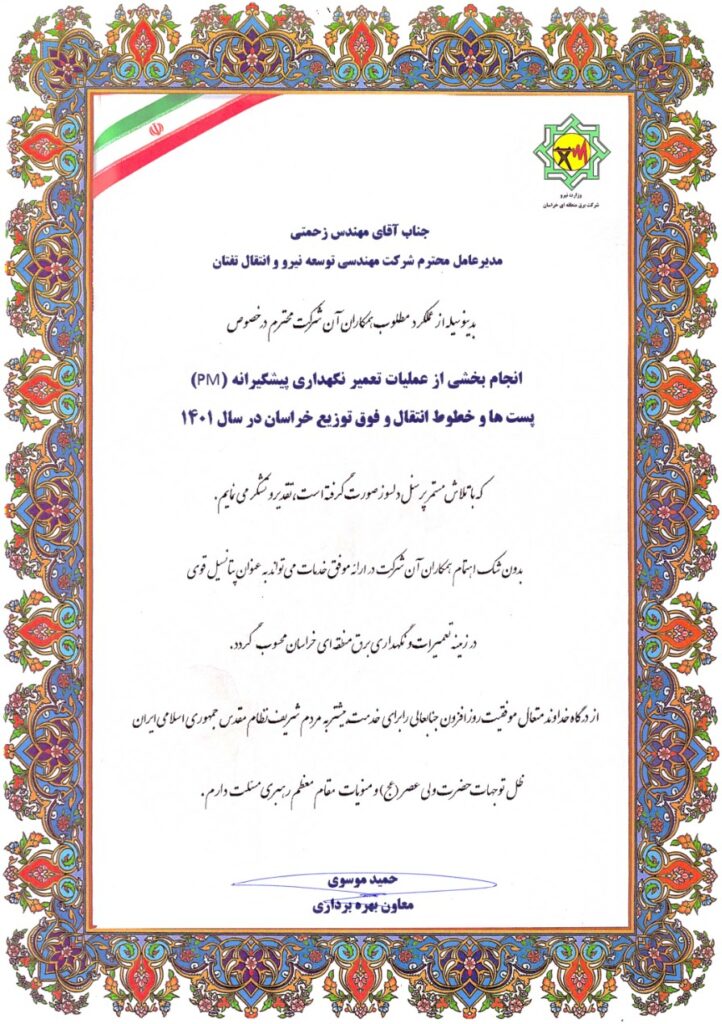 وزارت نیرو
شرکت برق منطقه ای خراسان
جناب آقای مهندس زحمتی
مدیرعامل محترم شرکت مهندسی توسعه نیرو و انتقال تفتان
بدینوسیله از عملکرد مطلوب همکاران آن شرکت محترم درخصوص
انجام بخشی از عملیات تعمیر نگهداری پیشگیرانه (PM)
پست ها و خطوط انتقال و فوق توزیع خراسان در سال ۱۴۰۱
که با تلاش مستمر پرسنل دلسوز صورت گرفته است، تقدیر و تشکر می نمایم.
بدون شک اهتمام همکاران آن شرکت در ارائه موفق خدمات می تواند به عنوان پتانسیل قوی
در زمینه تعمیرات و نگهداری برق منطقه ای خراسان محسوب گردد.
از درگاه خداوند متعال موفقیت روزافزون جنابعالی را برای خدمت بیشتر به مردم شریف نظام مقدس جمهوری اسلامی ایران
ظل توجهات حضرت ولی عصر (عج) و منویات مقام معظم رهبری مسئلت دارم.
حمید موسوی
معاون بهره برداری